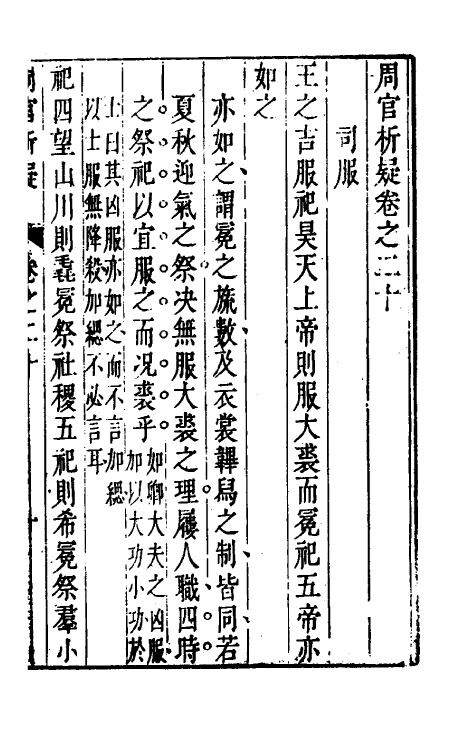 周官析疑卷之二十
司服
王之吉服祀昊天上帝則服大裘而冕祀五帝亦
如之
亦如之謂冕之旒數及衣裳韠舄之制皆同若
夏秋迎氣之祭決無服大裘之理屨人職四時
之祭祀以宜服之而况裘乎
如卿大夫之凶服
加以大功小功於
上曰其凶服亦如之而不言加緦
以士服無降殺加緦不必言耳
祀四望山川則毳冕祭社稷五祀則希冕祭羣小
周官析疑
卷之二十
一